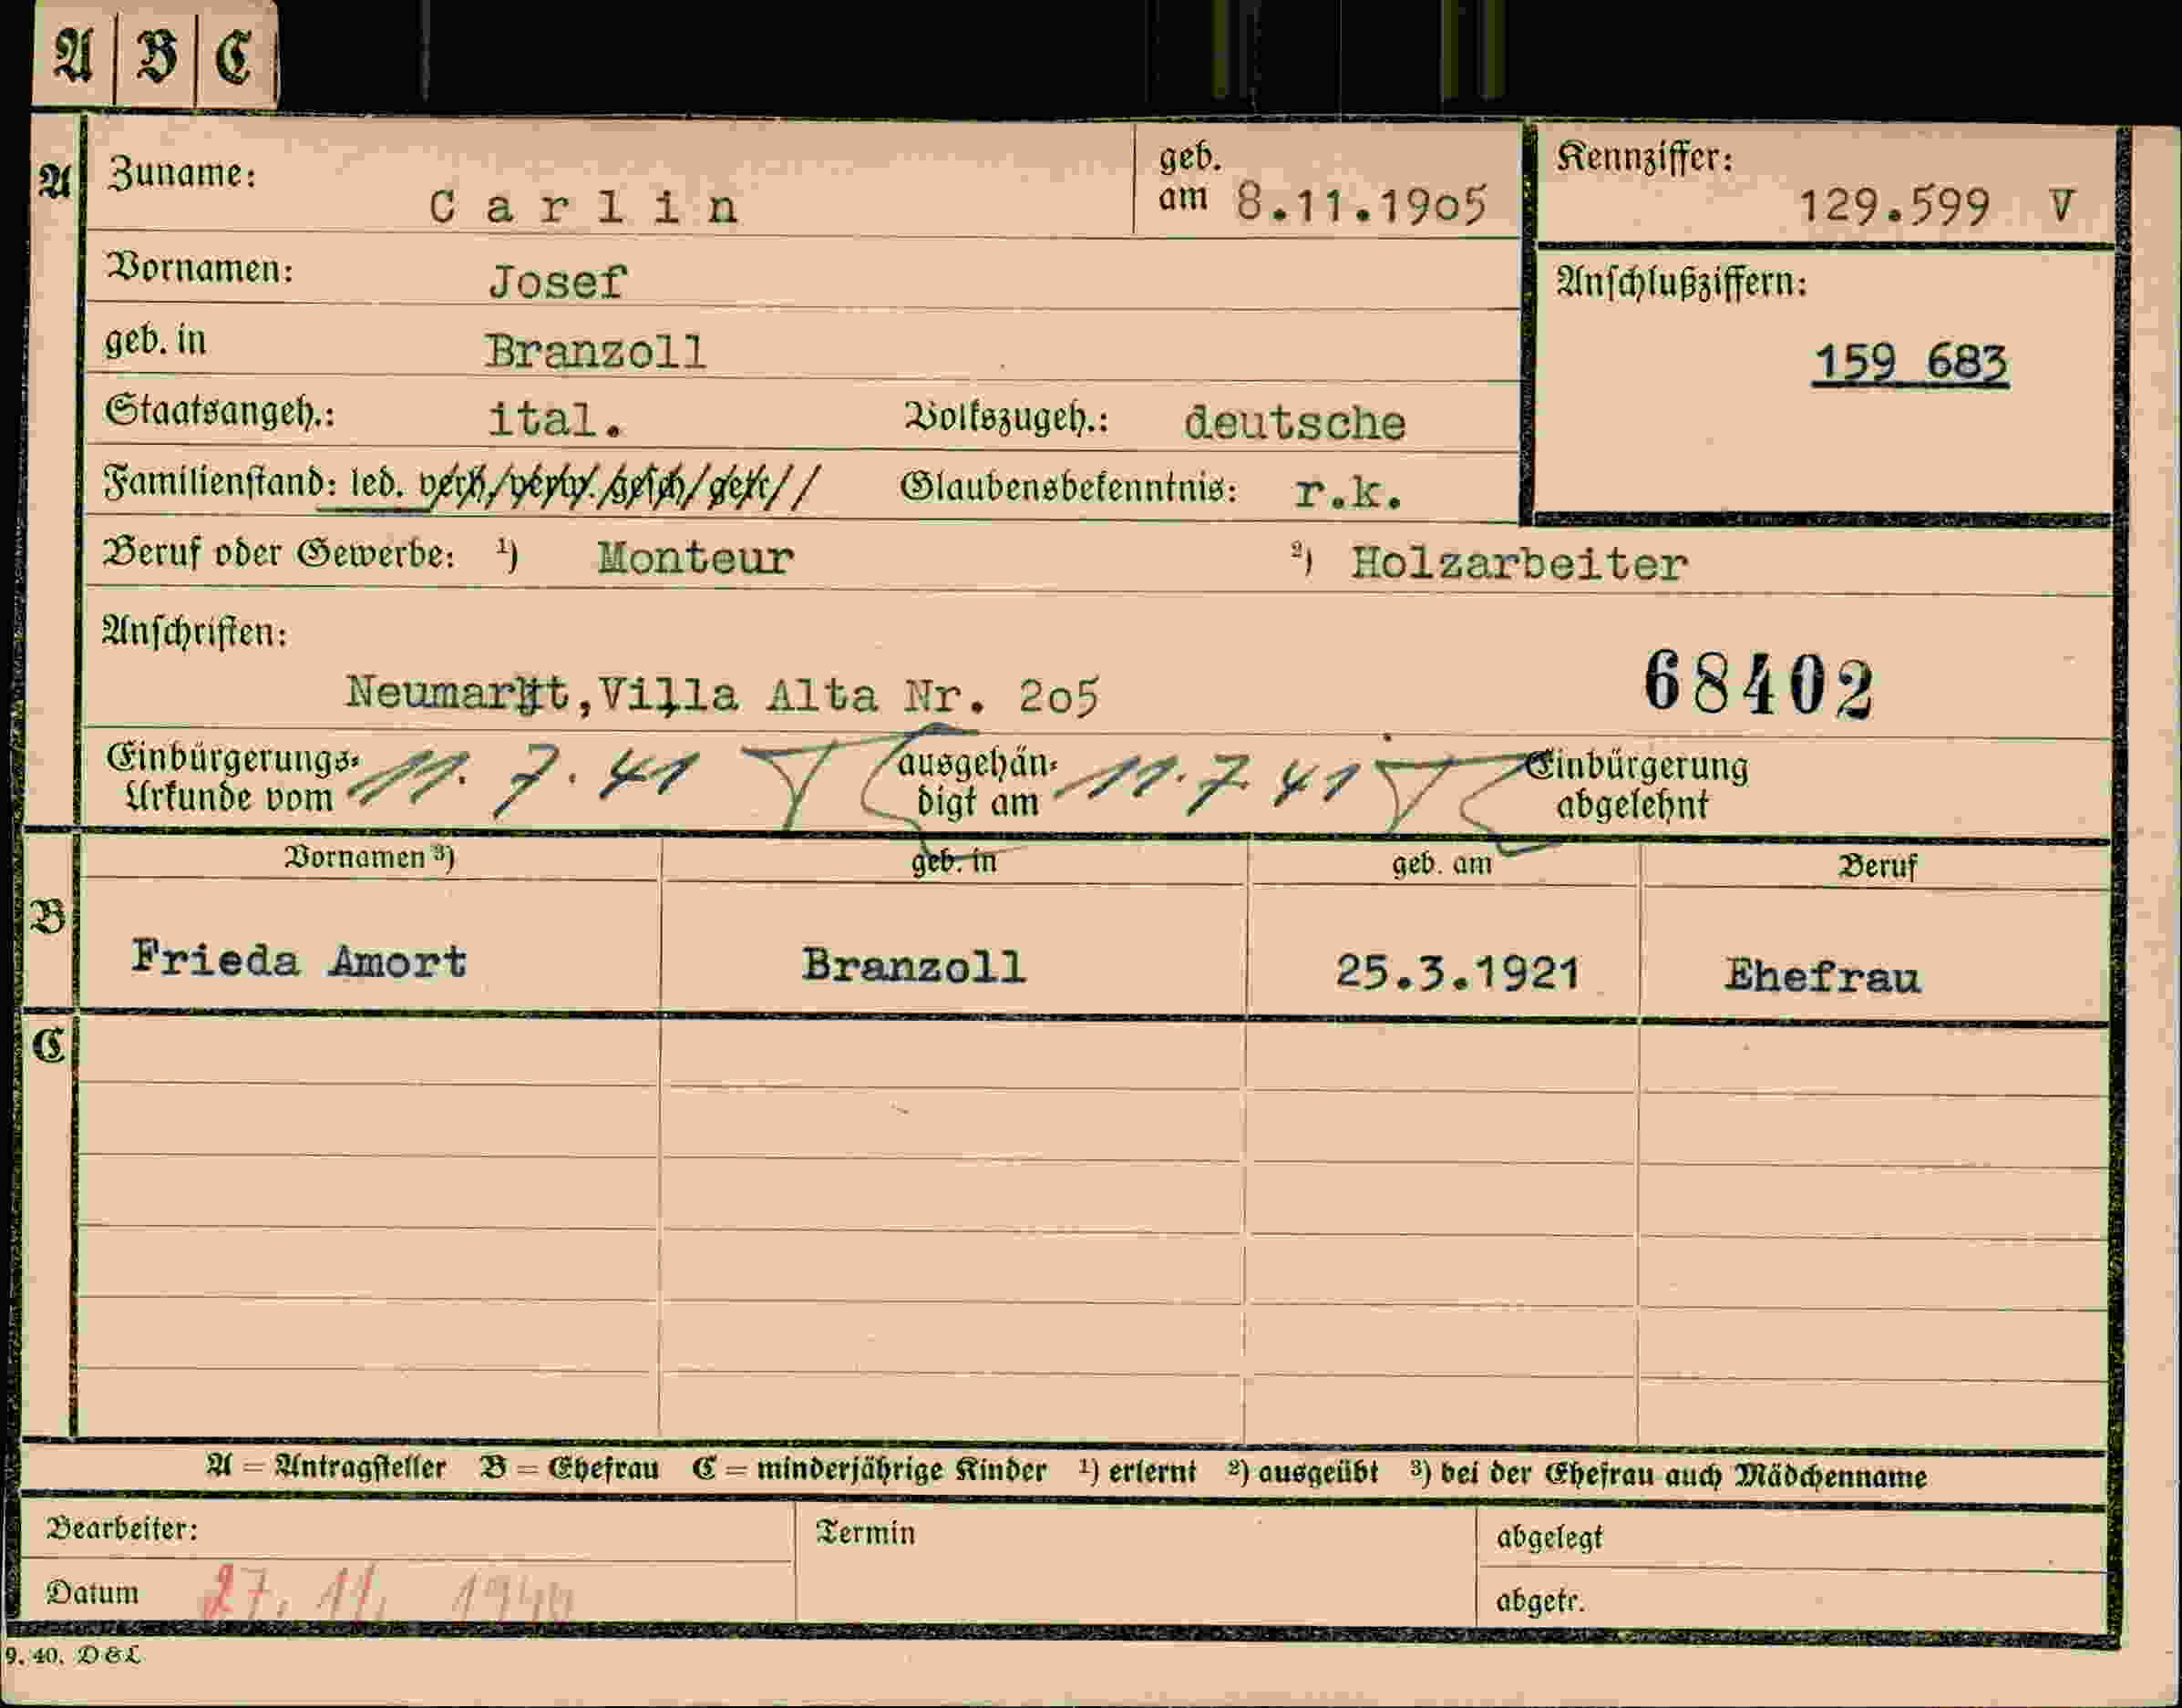 A B C
A Zuname: Carlin geb. am 8.11.1905 Kennziffer: 129.599 V
Vornamen: Josef Anschlußziffern:
geb. in Branzoll 159 683
Staatsangeh.: ital. Volkszugeh.: deutsche
Familienstand: led. verh. verw. gesch. getr. Glaubensbekenntnis: r.k.
Beruf oder Gewerbe: ¹) Monteur ²) Holzarbeiter
Anschriften:
Neumarkt, Villa Alta Nr. 205 68402
Einbürgerungs-Urkunde vom 11. 7. 41 ausgehändigt am 11. 7 41 Einbürgerung abgelehnt
Vornamen ³) geb. in geb. am Beruf
B Frieda Amort Branzoll 25.3.1921 Ehefrau
C
A = Antragsteller B = Ehefrau C = minderjährige Kinder ¹) erlernt ²) ausgeübt ³) bei der Ehefrau auch Mädchenname
Bearbeiter: Termin abgelegt
Datum 27. 11. 1940 abgetr.
9. 40. D & L